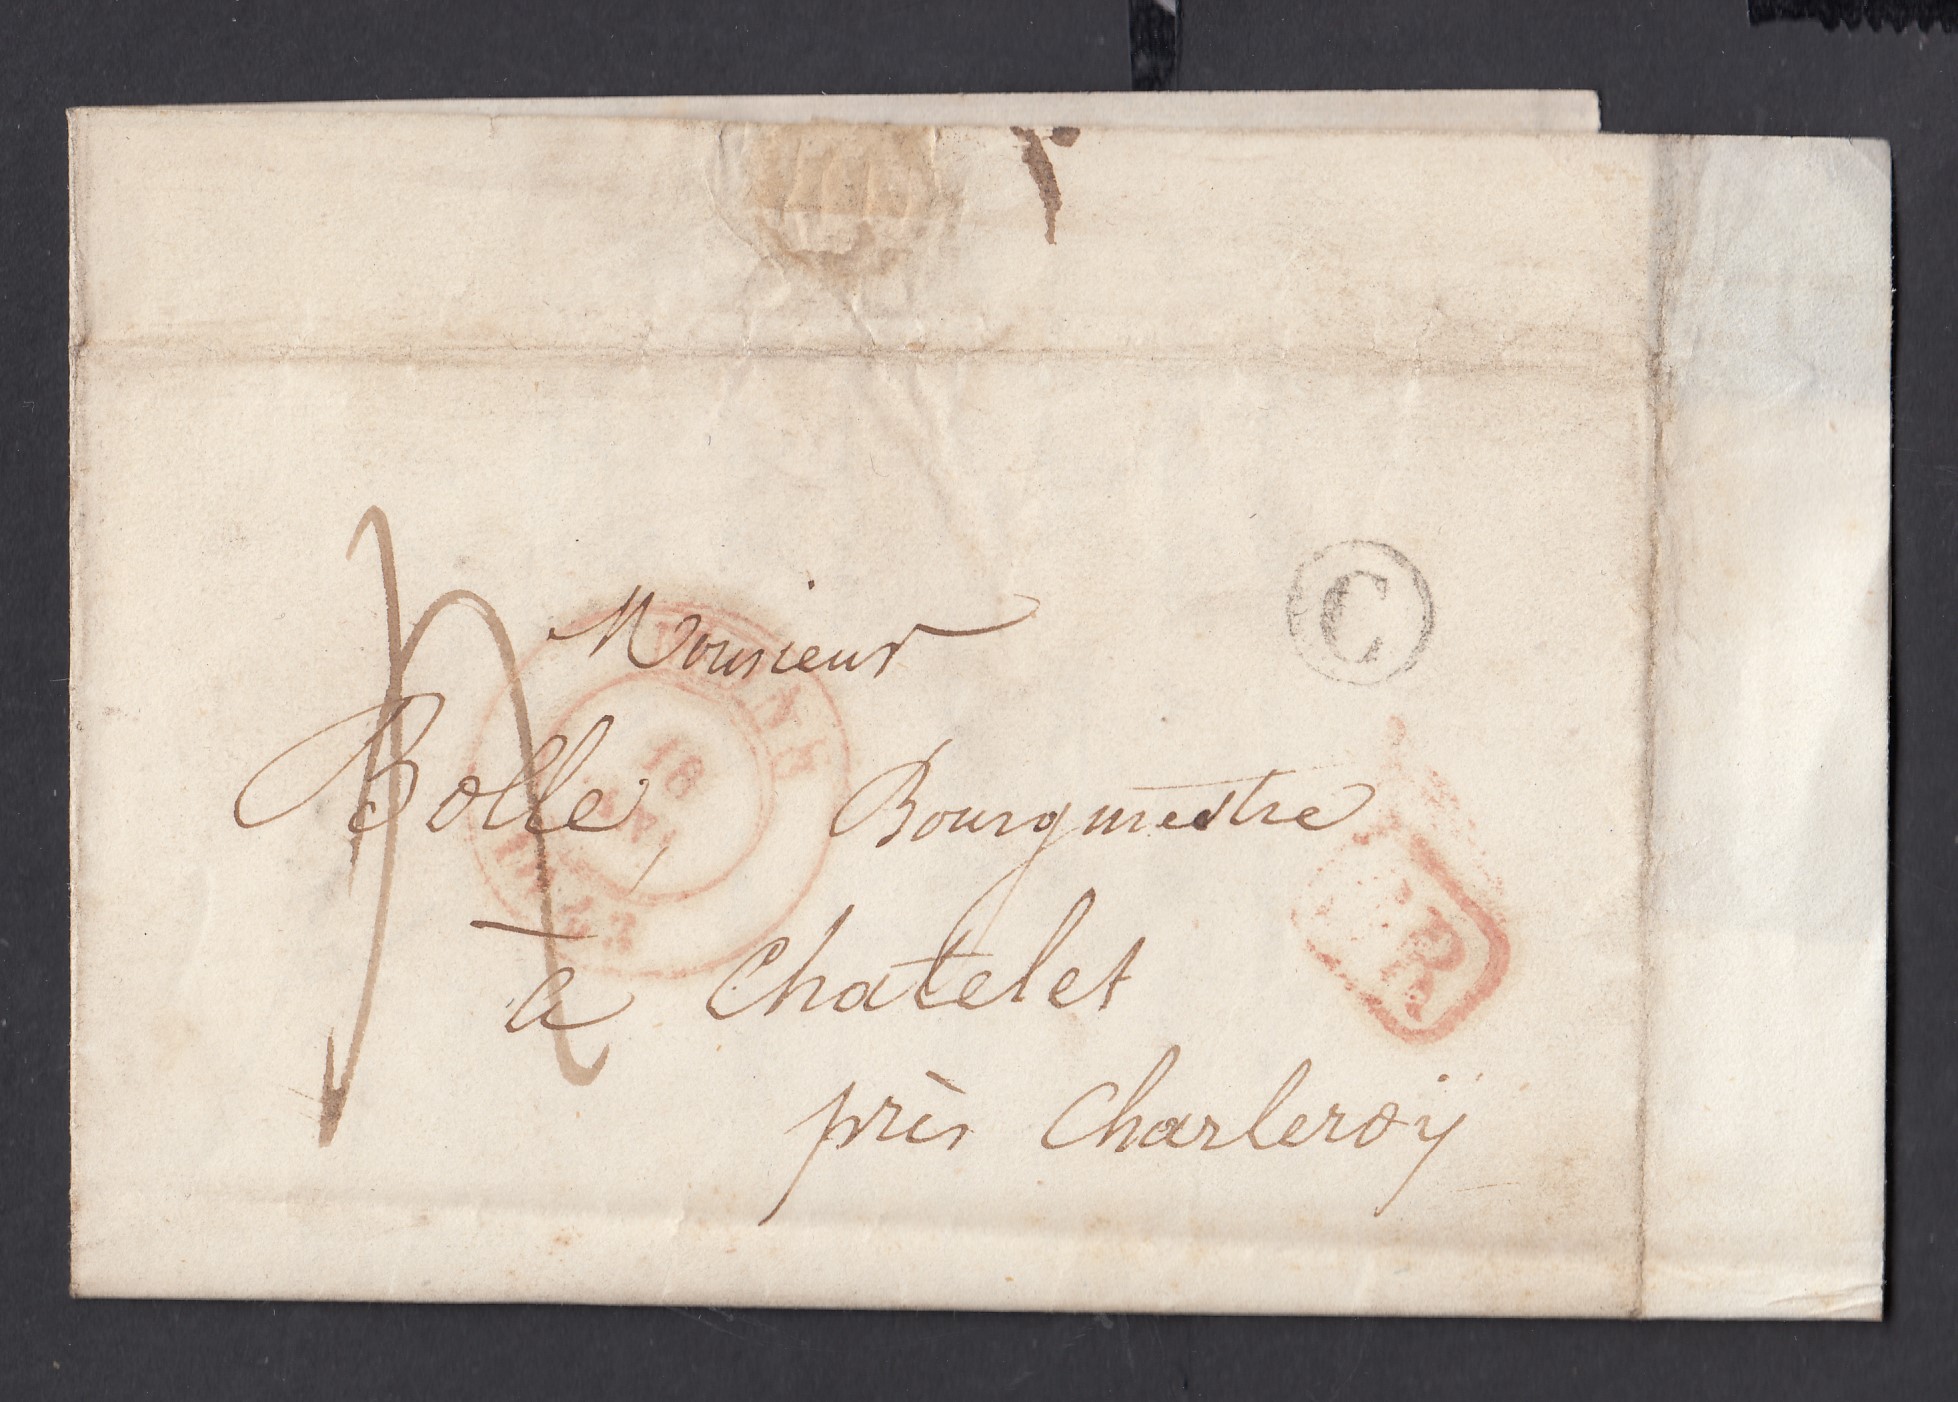 Monsieur
C
Bolle, Bourgmestre
à Chatelet
près Charleroÿ
18
R